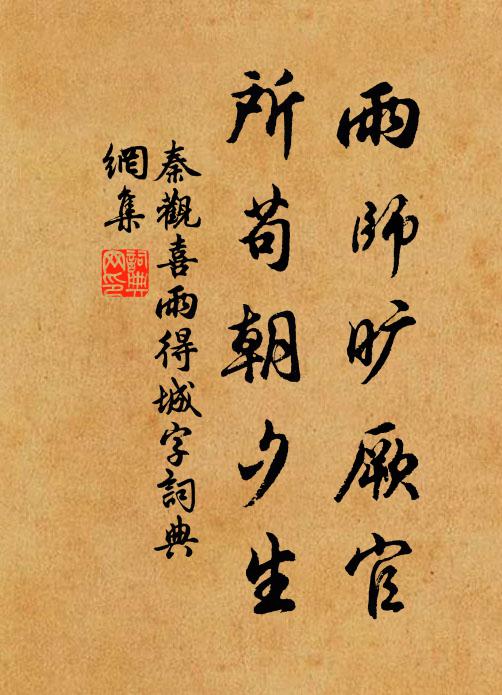 雨師旷厥官
所苟朝夕生
秦觀喜雨得城字詞典
網集
詞典
网印